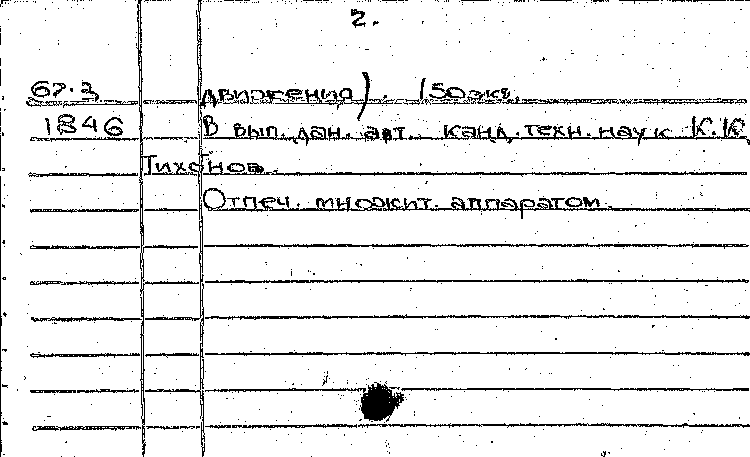 2.
67-3 движения). 150 экз.
1846 В вып. дан. авт. канд. техн. наук К.К.
Тихонов.
Отпеч. множит. аппаратом.